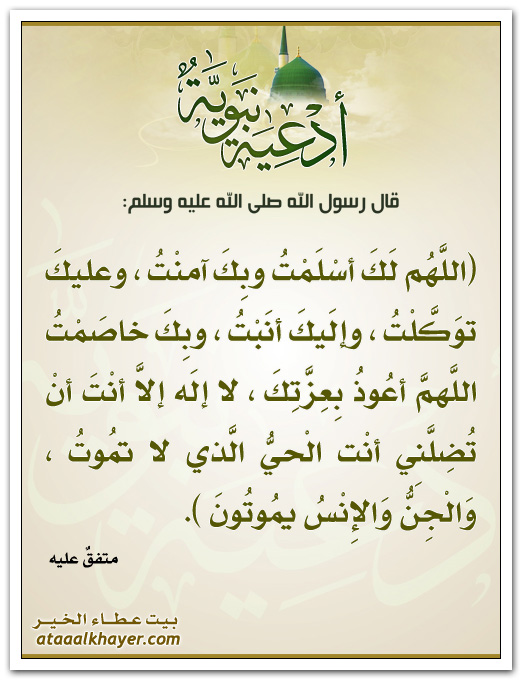 أدعية نبوية
قال رسول الله صلى الله عليه وسلم:
(اللَّهُم لَكَ أسْلَمْتُ وبِكَ آمنْتُ ، وعليكَ
توَكَّلْتُ ، وإلَيكَ أنَبْتُ ، وبِكَ خاصَمْتُ
اللَّهمَّ أعُوذُ بِعِزَّتِكَ ، لا إلَه إلاَّ أنْتَ أنْ
تُضِلَّني أنْت الْحيُّ الَّذي لا تمُوتُ ،
وَالْجِنُّ وَالإِنْسُ يمُوتُونَ ).
متفقٌ عليه
بيت عطاء الخير
ataaalkhayer.com